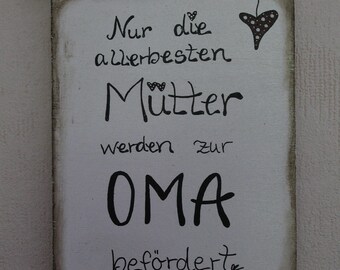 Nur die
allerbesten
Mütter
werden zur
OMA
befördert